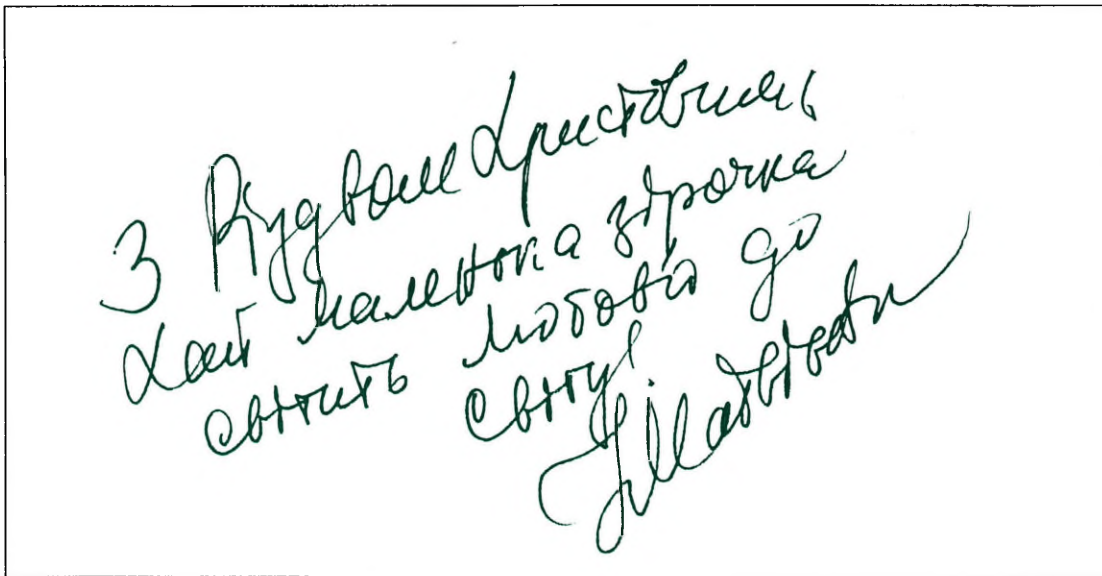 З Різдвом Христовим
Хай маленька зірочка
світить любов'ю до
світу!